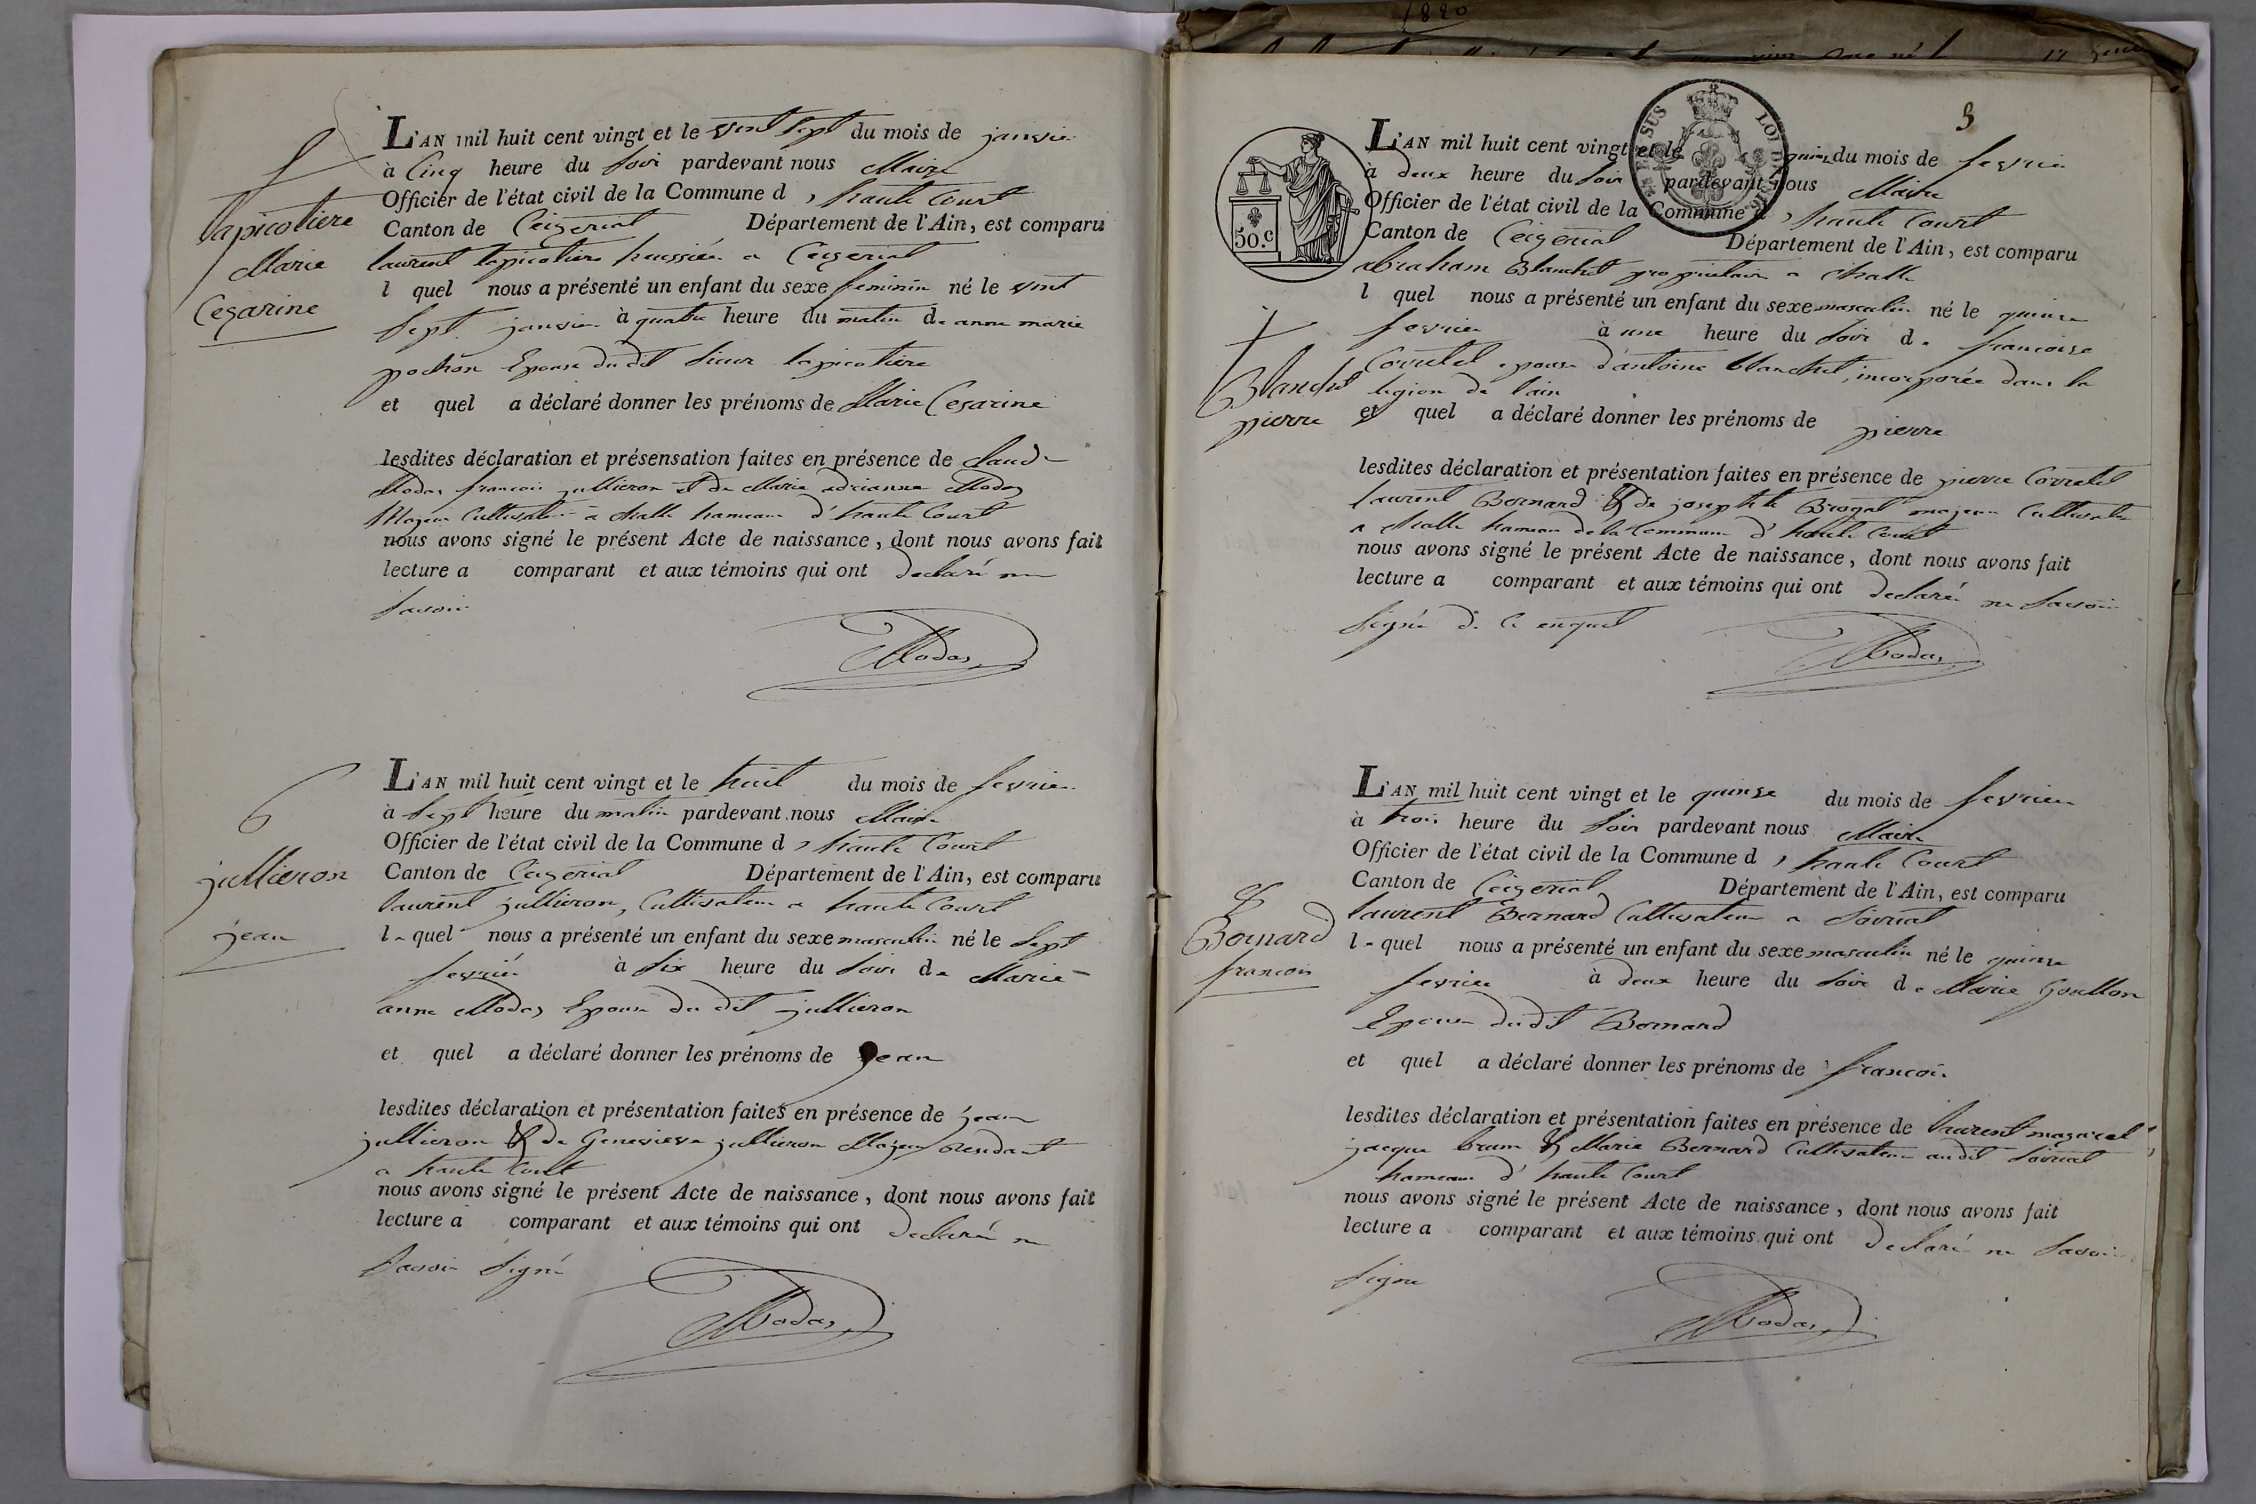 5
Lapicotiere
Marie
Cesarine
L'AN mil huit cent vingt et le vint sept du mois de janvier
à Cinq heure du Soir pardevant nous Maire
Officier de l'état civil de la Commune d, haute Court
Canton de Ceizeriat Département de l'Ain, est comparu
laurent lapicotiere huissier a Ceizeriat
l quel nous a présenté un enfant du sexe feminin né le vint
Sept janvier à quatre heure du matin de anne marie
pochon Epouse du dit Sieur lapicotiere
et quel a déclaré donner les prénoms de Marie Cesarine
lesdites déclaration et présensation faites en présence de Claude
Modas francois jullieron et de Marie adrianne Modas
Majeur Cultivateur a Challe hameau d'haute Court
nous avons signé le présent Acte de naissance, dont nous avons fait
lecture a comparant et aux témoins qui ont declaré ne
Savoir
Modas
6
jullieron
jean
L'AN mil huit cent vingt et le huit du mois de fevrier
à Sept heure du matin pardevant nous Maire
Officier de l'état civil de la Commune d, haute Court
Canton de Ceizeriat Département de l'Ain, est comparu
laurent jullieron, Cultivateur a haute Court
l e quel nous a présenté un enfant du sexe masculin né le Sept
fevrier à Six heure du Soir de Marie
anne Modas Epouse du dit jullieron
et quel a déclaré donner les prénoms de jean
lesdites déclaration et présentation faites en présence de jean
jullieron & de Genevieve jullieron Majeur
a haute Court
nous avons signé le présent Acte de naissance, dont nous avons fait
lecture a comparant et aux témoins qui ont declaré ne
Savoir Signé
Modas
1820
3
50.c
SUS LOI DE
7
Blanchet
pierre
L'AN mil huit cent vingt et le quinze du mois de fevrier
à deux heure du Soir pardevant nous Maire
Officier de l'état civil de la Commune d, haute Court
Canton de Ceizeriat Département de l'Ain, est comparu
abraham Blanchet proprietaire a Challe
l quel nous a présenté un enfant du sexe masculin né le quinze
fevrier à une heure du Soir de francoise
Corretel epouse d'antoine blanchet, incorporée dans la
legion de l'ain
et quel a déclaré donner les prénoms de pierre
lesdites déclaration et présentation faites en présence de pierre Corretel
laurent Bernard & de josephte majeur Cultivateur
a Challe hameau de la Commune d'haute Court
nous avons signé le présent Acte de naissance, dont nous avons fait
lecture a comparant et aux témoins qui ont declaré ne Savoir
Signé de ce enquet
Modas
8
Bernard
francois
L'AN mil huit cent vingt et le quinze du mois de fevrier
à trois heure du Soir pardevant nous Maire
Officier de l'état civil de la Commune d, haute Court
Canton de Ceizeriat Département de l'Ain, est comparu
laurent Bernard Cultivateur a
l e quel nous a présenté un enfant du sexe masculin né le quinze
fevrier à deux heure du Soir de Marie
Epouse dudit Bernard
et quel a déclaré donner les prénoms de francois
lesdites déclaration et présentation faites en présence de laurent
jacque brun & Marie Bernard Cultivateur audit
hameau d'haute Court
nous avons signé le présent Acte de naissance, dont nous avons fait
lecture a comparant et aux témoins qui ont declaré ne Savoir
Signe
Modas